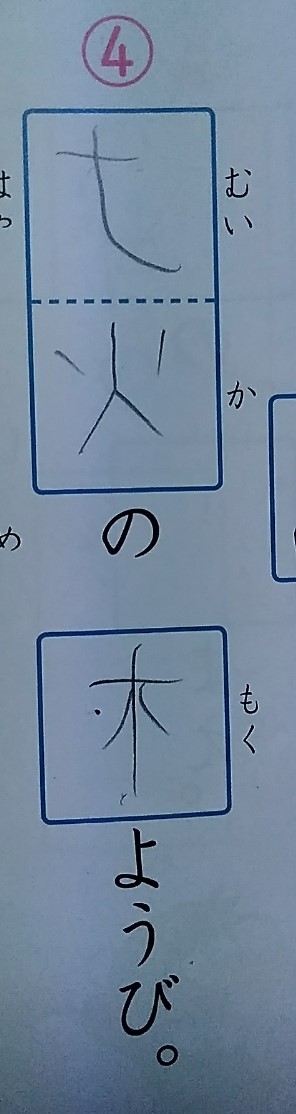 ④
七火の木ようび。
むい
か
もく